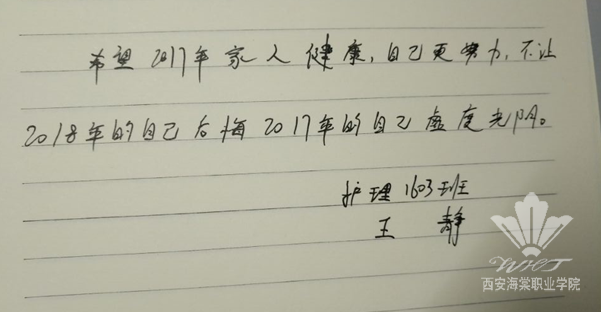 希望2017年家人健康，自己更努力，不让
2018年的自己后悔2017年的自己虚度光阴。
护理1603班
王 静
WHT
西安海棠职业学院